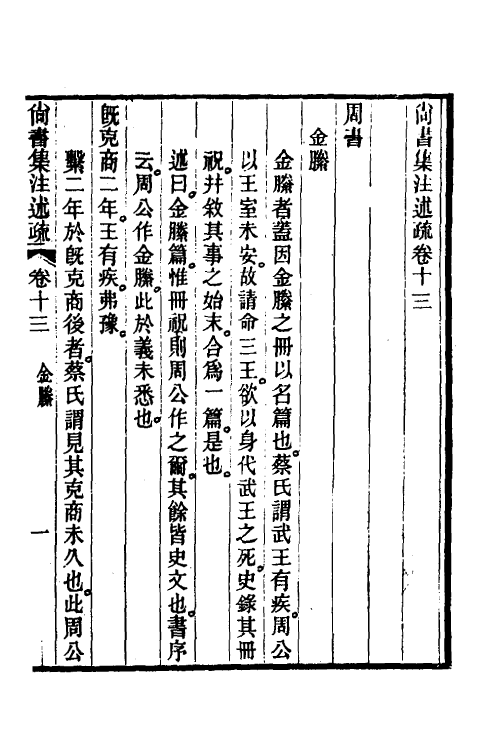 尙書集注述疏卷十三
周書
金縢
金縢者蓋因金縢之冊以名篇也。蔡氏謂武王有疾。周公
以王室未安。故請命三王。欲以身代武王之死。史錄其冊
祝。并敘其事之始末。合爲一篇。是也。
述曰。金縢篇。惟冊祝則周公作之爾。其餘皆史文也。書序
云。周公作金縢。此於義未悉也。
旣克商二年。王有疾。弗豫。
繫二年於旣克商後者。蔡氏謂見其克商未久也。此周公
尙書集注述疏 卷十三 金縢 一